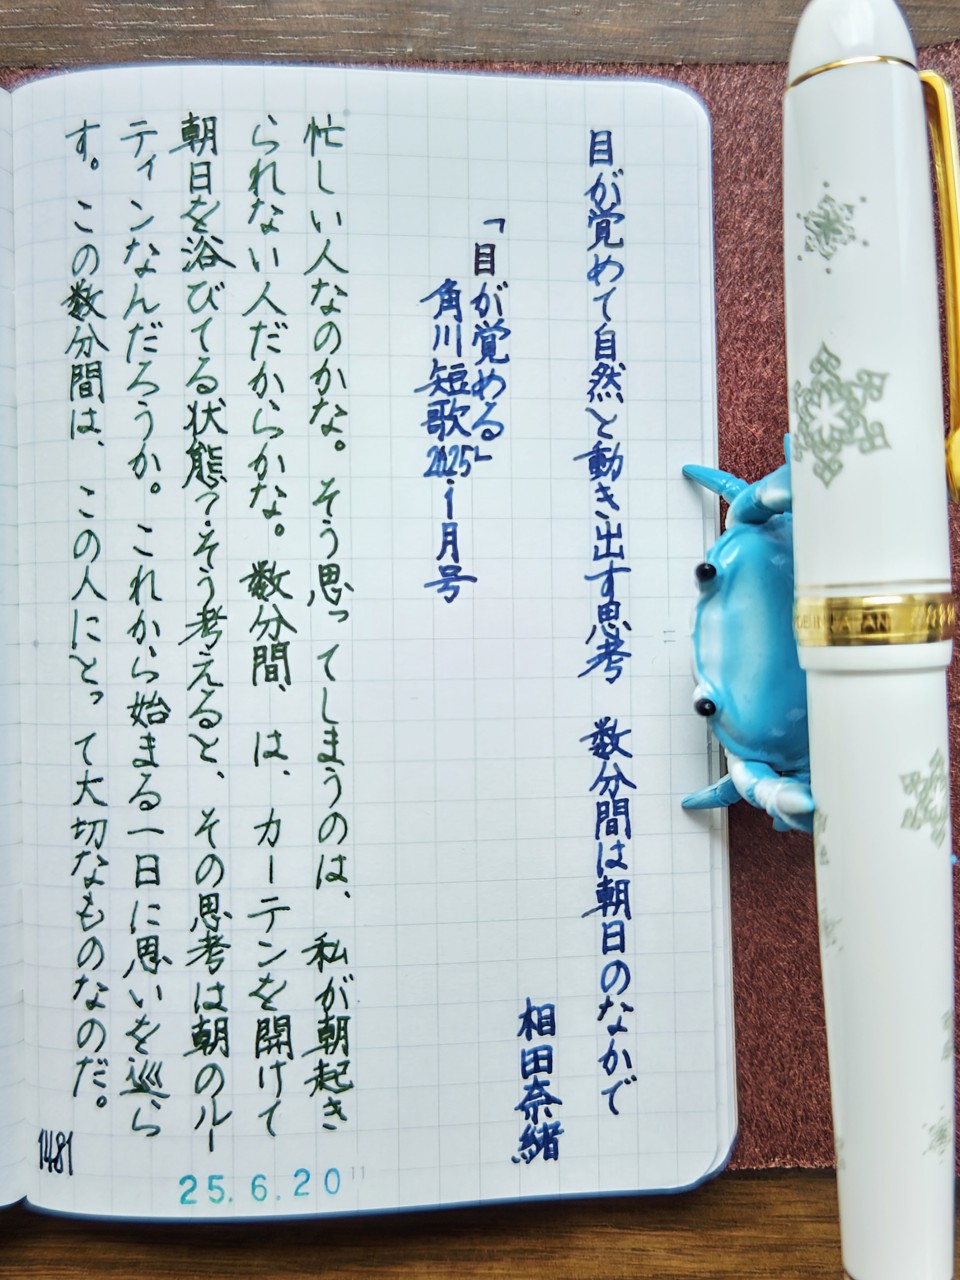 目が覚めて自然と動き出す思考 数分間は朝日のなかで
相田奈緒
「目が覚める」
角川短歌2025.1月号
忙しい人なのかな。そう思ってしまうのは、私が朝起き
られない人だからかな。数分間、は、カーテンを開けて
朝日を浴びてる状態？そう考えると、その思考は朝のルー
ティンなんだろうか。これから始まる一日に思いを巡ら
す。この数分間は、この人にとって大切なものなのだ。
1481
25.6.20